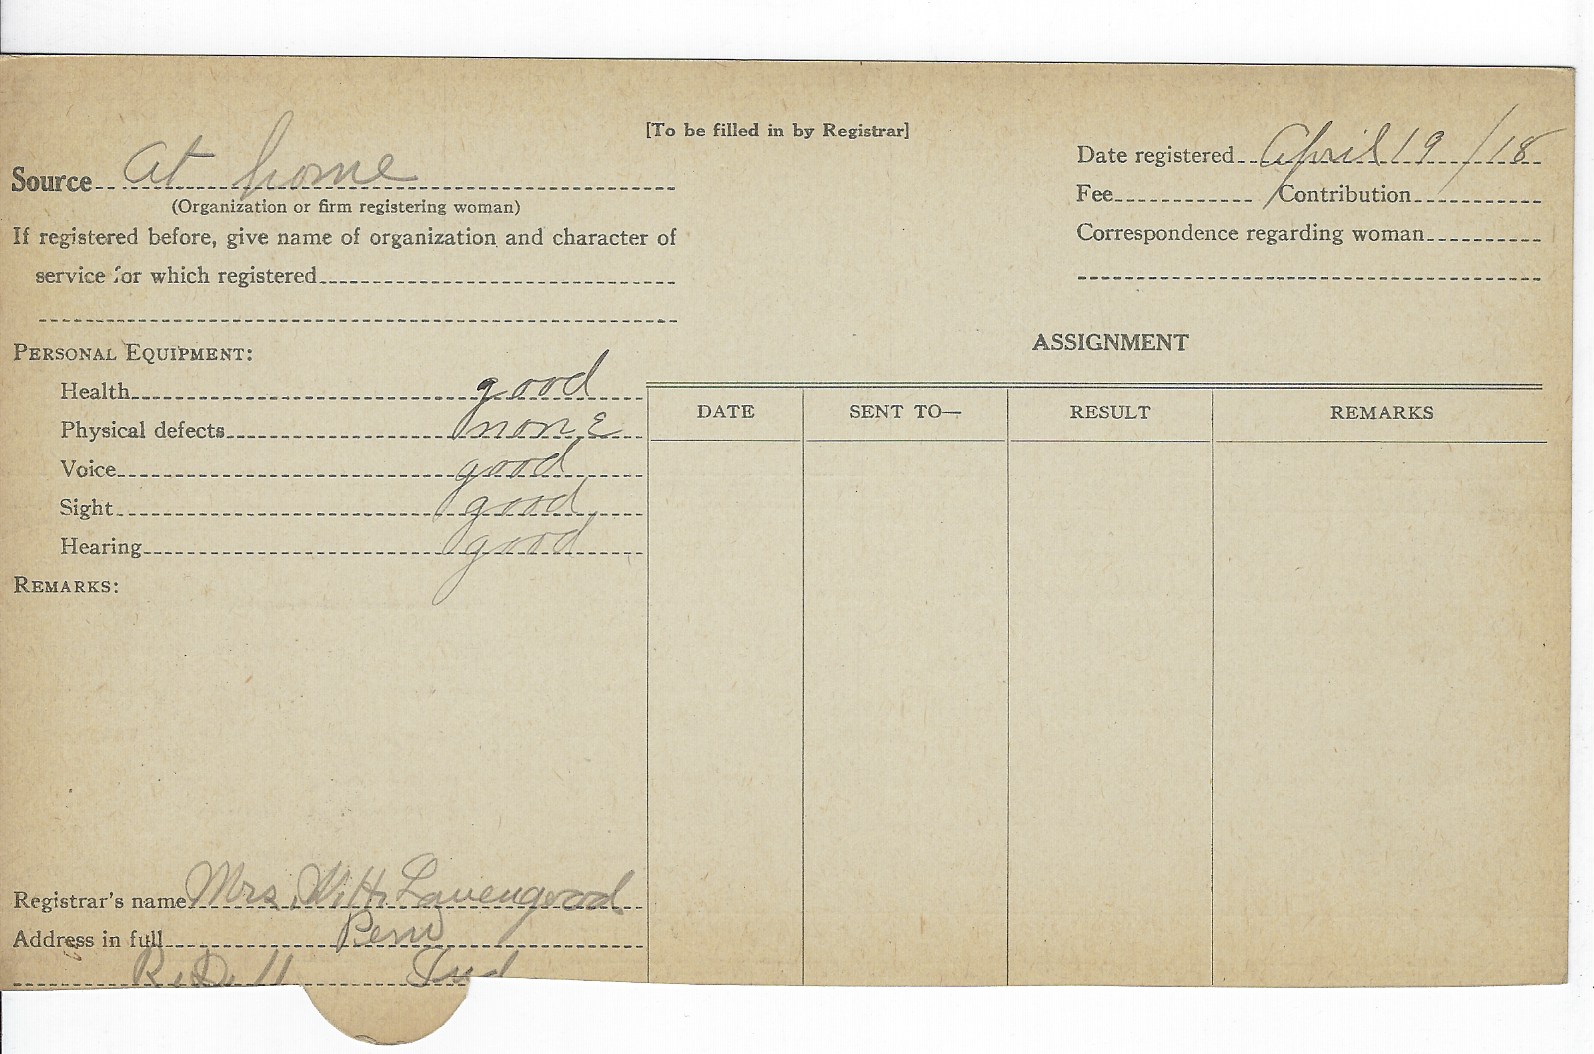 [To be filled in by Registrar]
Source At home
(Organization or firm registering woman)
If registered before, give name of organization and character of
service for which registered
Date registered April 19/18
Fee Contribution
Correspondence regarding woman
PERSONAL EQUIPMENT:
Health good
Physical defects none
Voice good
Sight good
Hearing good
REMARKS:
ASSIGNMENT
DATE SENT TO— RESULT REMARKS
Registrar's name Mrs. W. H. Lavengood
Address in full Peru
R. D. 11 Ind